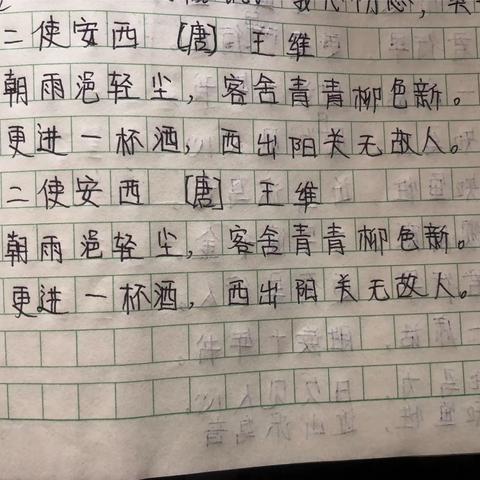 二使安西 [唐] 王维
朝雨浥轻尘，客舍青青柳色新。
更进一杯酒，西出阳关无故人。
二使安西 [唐] 王维
朝雨浥轻尘，客舍青青柳色新。
更进一杯酒，西出阳关无故人。